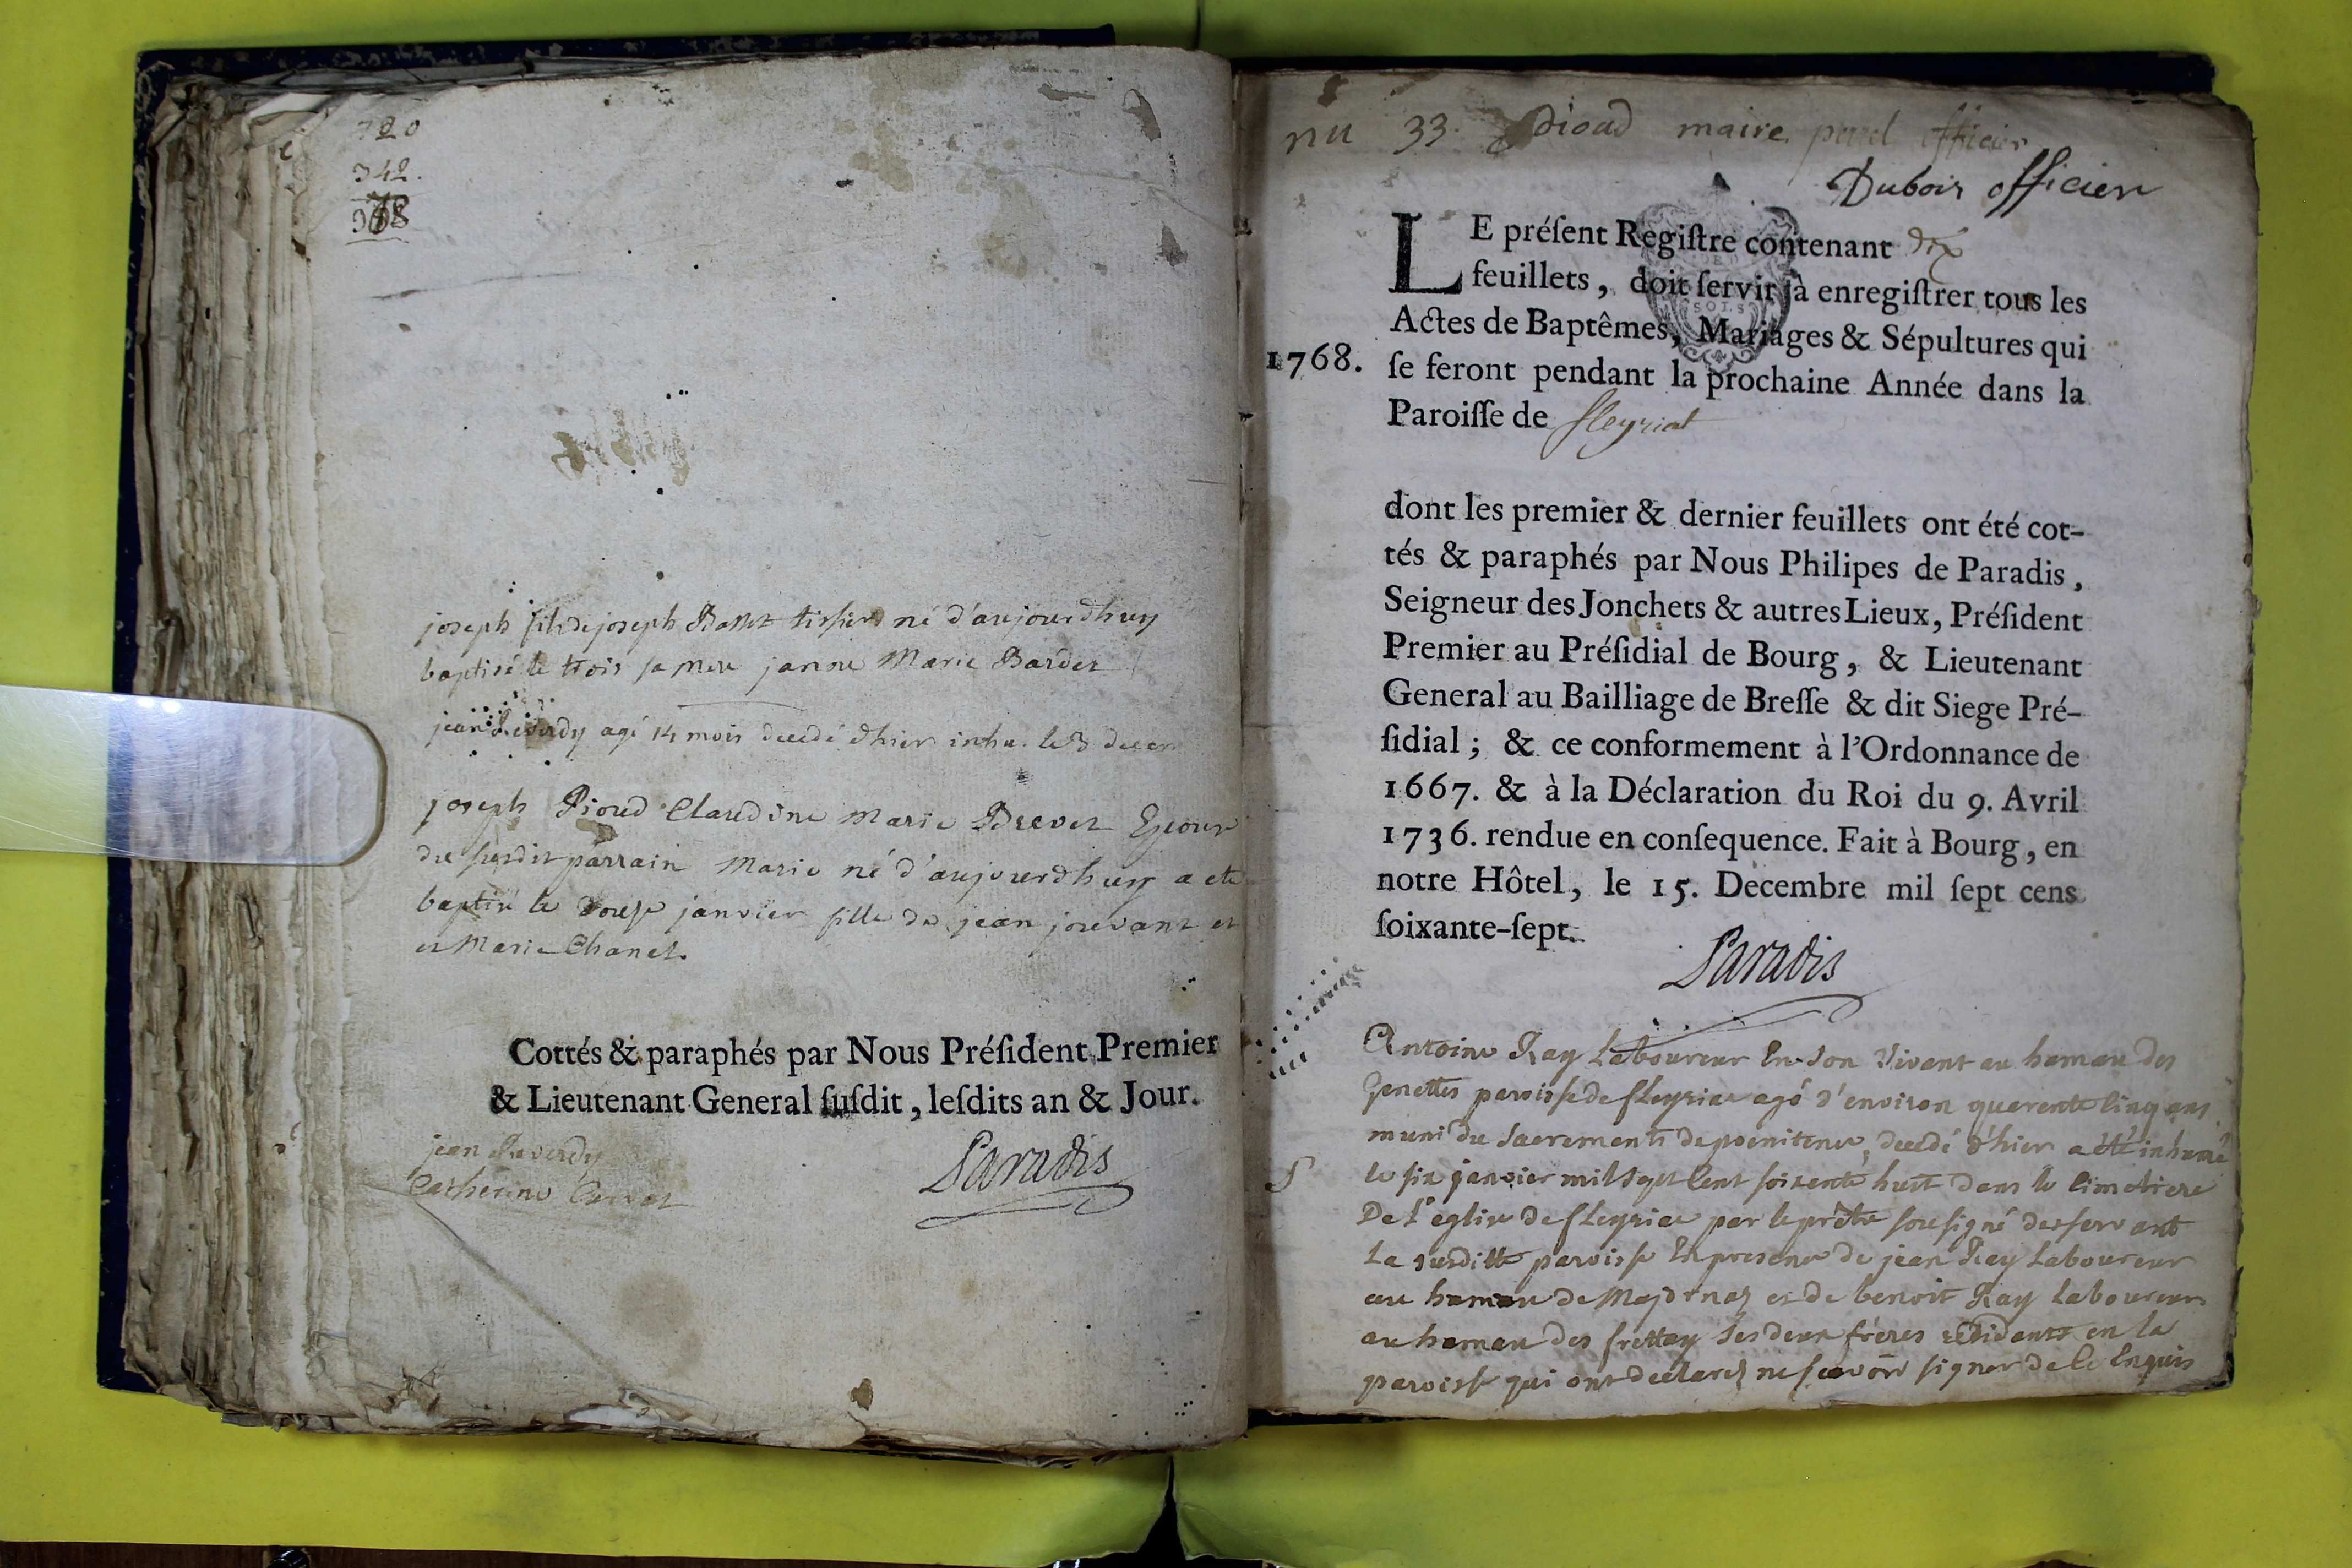 720
342.
joseph fils de joseph Ballet tissier né d'aujourdhuy
baptisé le trois sa mere janne Marie Bardet
jean Reverdy agé 14 mois decedé d'hier inhu. le 3 decem
joseph Pioud Claudine Marie Brevet Epouse
du susdit parrain Marie né d'aujourdhuy a eté
baptisé le douse janvier fille de jean jouvant et
et Marie Chanel.
Cottés & paraphés par Nous Préſident Premier
& Lieutenant General ſuſdit, leſdits an & Jour.
jean Reverdy
Catherine
Paradis
nu 33. pioud maire officier
Dubois officier
LE préſent Regiſtre contenant dix
feuillets, doit ſervir à enregiſtrer tous les
Actes de Baptêmes, Mariages & Sépultures qui
1768. ſe feront pendant la prochaine Année dans la
Paroiſſe de fleyriat
dont les premier & dernier feuillets ont été cot-
tés & paraphés par Nous Philipes de Paradis,
Seigneur des Jonchets & autres Lieux, Préſident
Premier au Préſidial de Bourg, & Lieutenant
General au Bailliage de Breſſe & dit Siege Pré-
ſidial; & ce conformement à l'Ordonnance de
1667. & à la Déclaration du Roi du 9. Avril
1736. rendue en conſequence. Fait à Bourg, en
notre Hôtel, le 15. Decembre mil ſept cens
ſoixante-ſept.
Paradis
Antoine Ray Laboureur En Son Vivant au hameau des
Genettes paroisse de fleyriat agé d'environ quarente Cinq ans
muni du Sacrements de poenitence, decedé d'hier a été inhumé
S le six janvier mil Sept Cent soixente huit dans le Cimetiere
De L'eglise de fleyriat par le prêtre sousigné desservant
La susditte paroisse En presence de jean Ray Laboureur
au hameau de Majornas et de benoit Ray Laboureur
au hameau des frettay Ses deux frères residants en la
paroisse qui ont declarez ne scavoir signer de Ce Enquis